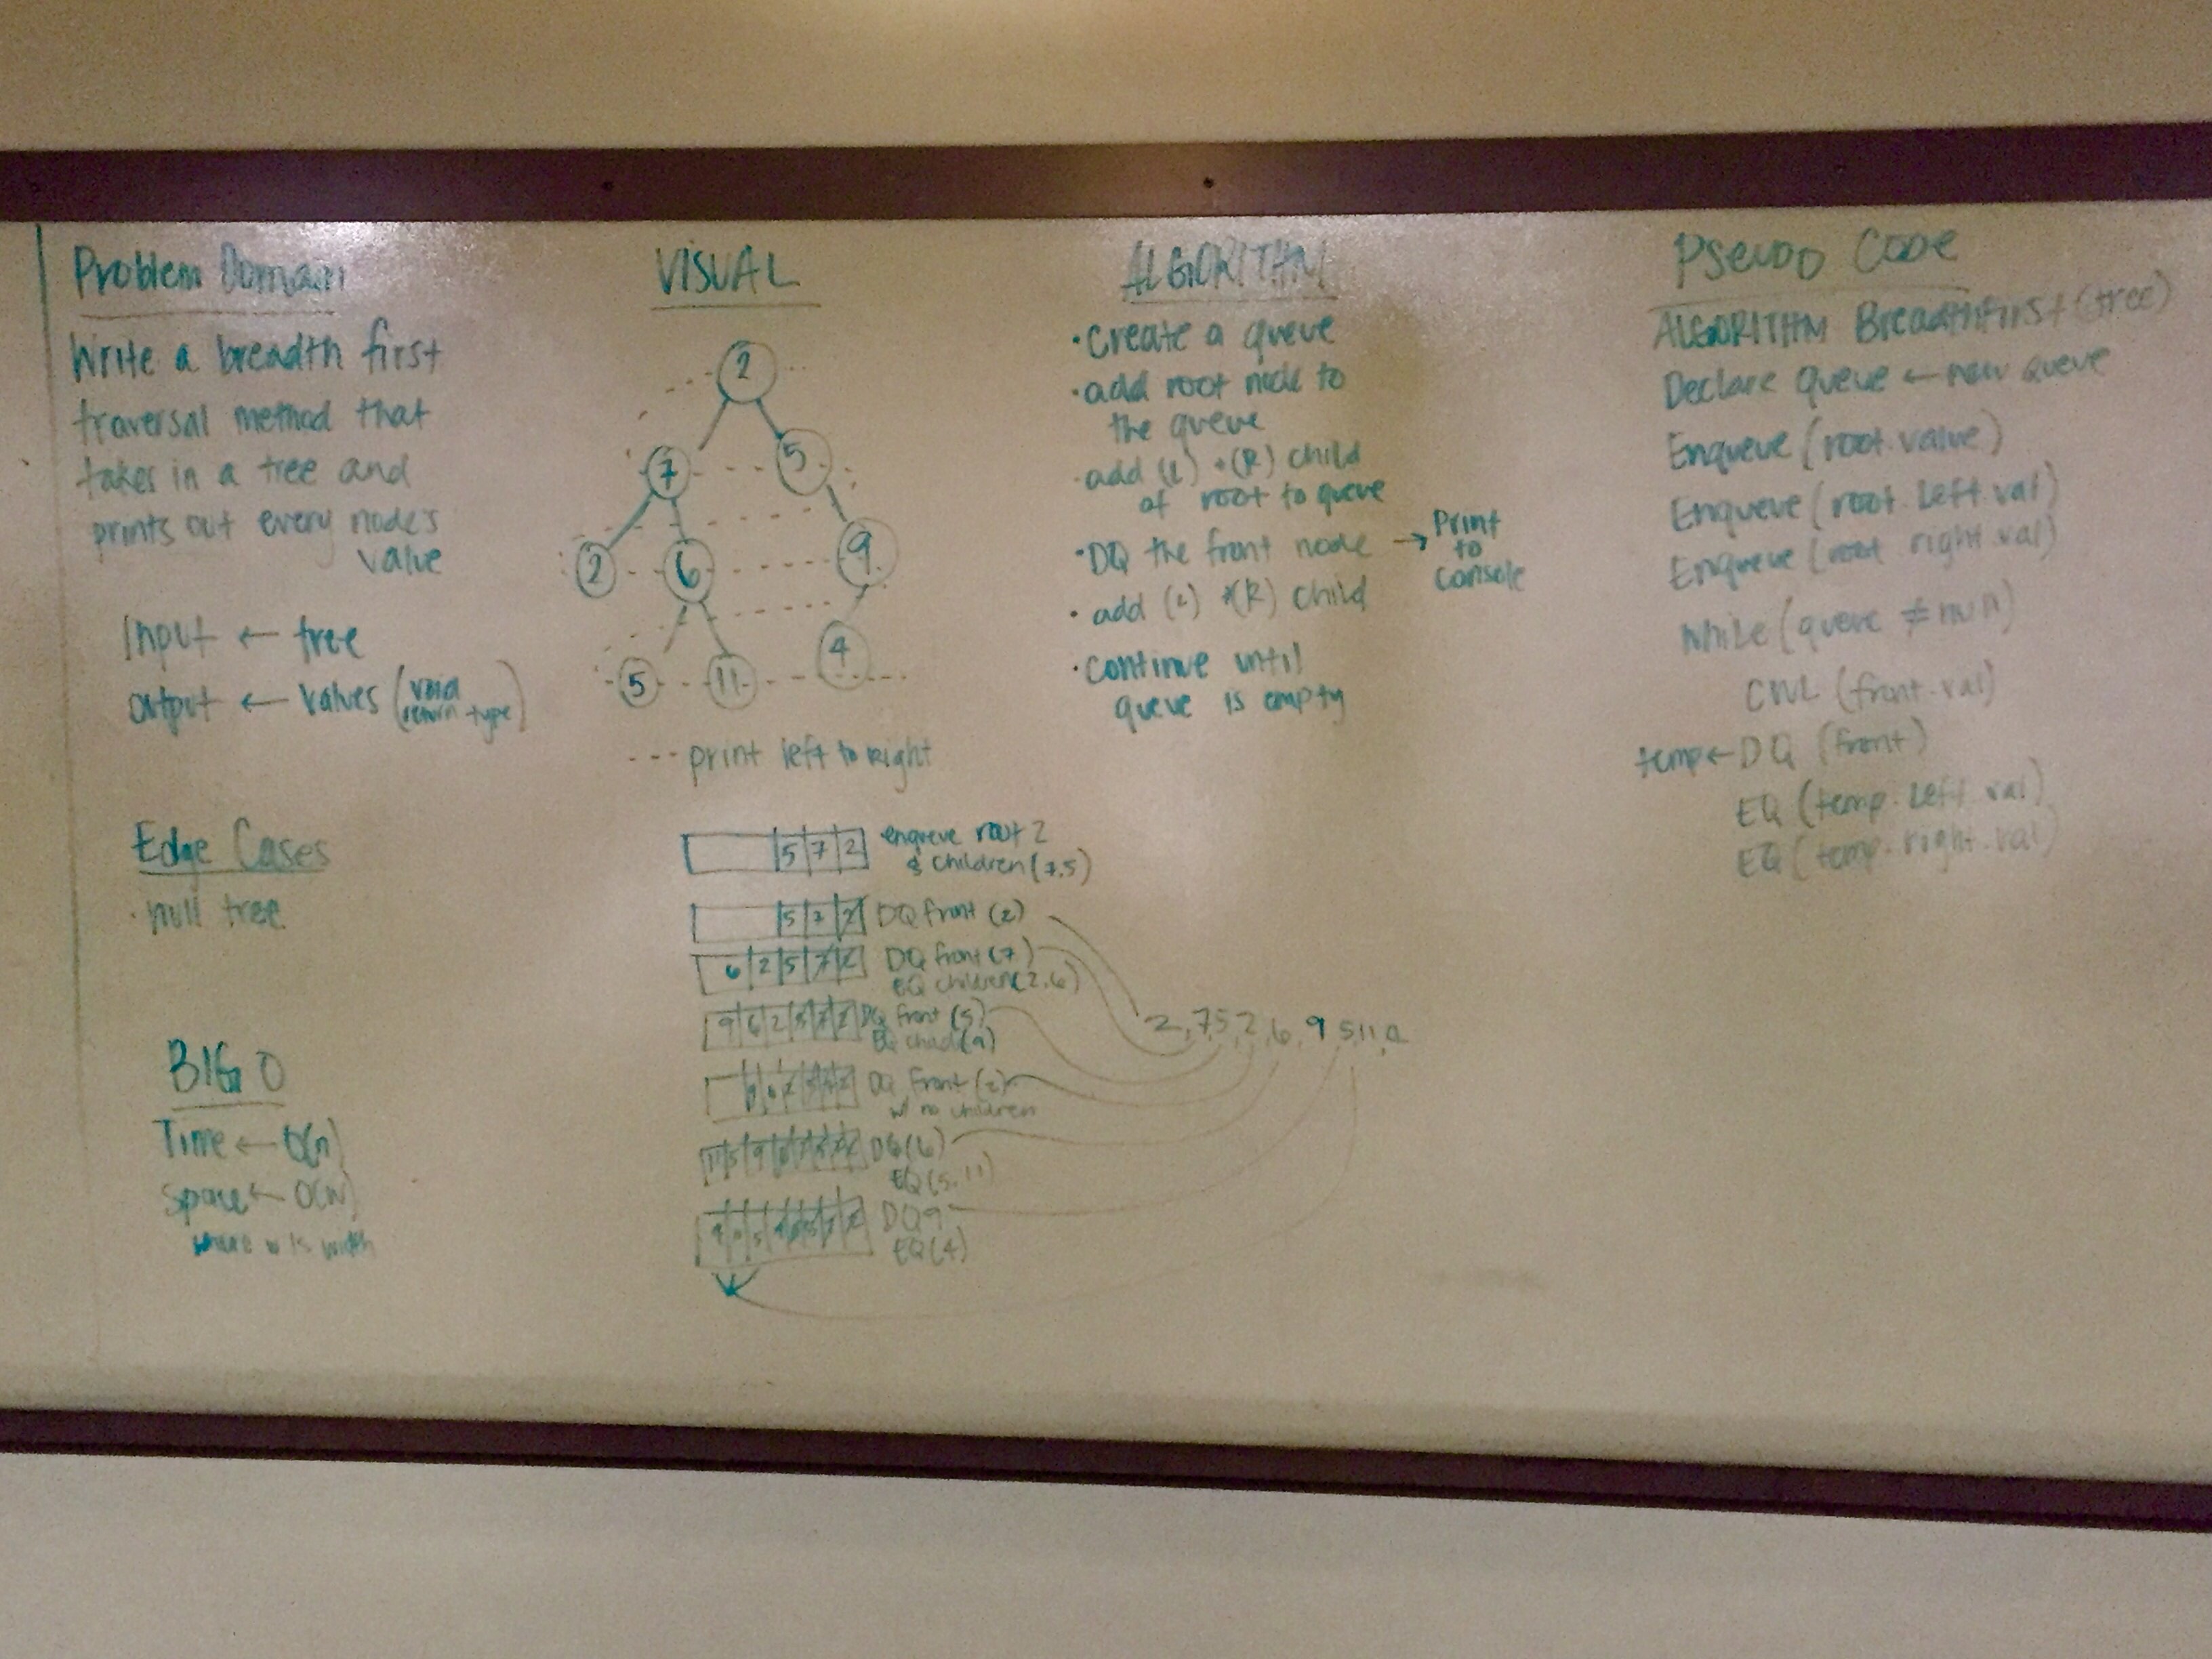 Problem Domain
Write a breadth first
traversal method that
takes in a tree and
prints out every node's
value
Input ← tree
output ← values (void
return type)
Edge Cases
· null tree
BIG O
Time ← O(n)
Space ← O(w)
where w is width
VISUAL
2
7 5
2 6 9
5 11 4
--- print left to right
5 7 2 enqueue root 2
& children (7,5)
5 7 2 DQ front (2)
6 2 5 7 2 DQ front (7)
EQ children (2,6)
9 6 2 5 7 2 DQ front (5)
EQ child (9)
DQ front (2)
w/ no children
DQ (6)
EQ (5, 11)
DQ 9
EQ (4)
2, 7, 5, 2, 6, 9 5, 11, 4
ALGORITHM
· Create a queue
· add root node to
the queue
· add (L) + (R) child
of root to queue
· DQ the front node → Print
to
console
· add (L) + (R) child
· Continue until
queue is empty
Pseudo Code
ALGORITHM BreadthFirst (tree)
Declare queue ← new queue
Enqueue (root.value)
Enqueue (root.Left.val)
Enqueue (root.right.val)
While (queue ≠ null)
CWL (front.val)
temp ← DQ (front)
EQ (temp.Left.val)
EQ (temp.right.val)